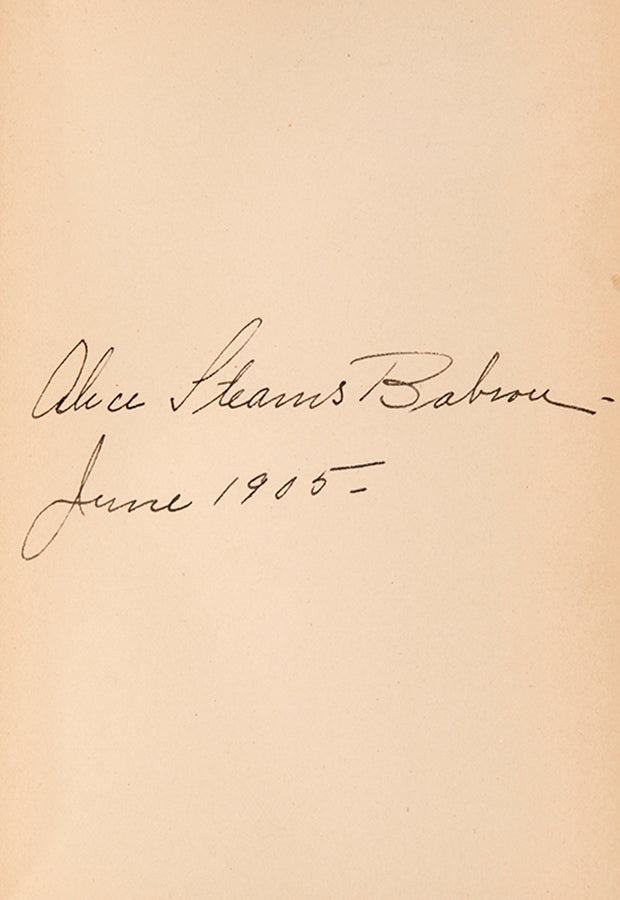 Alice Stearns Babson -
June 1905 -